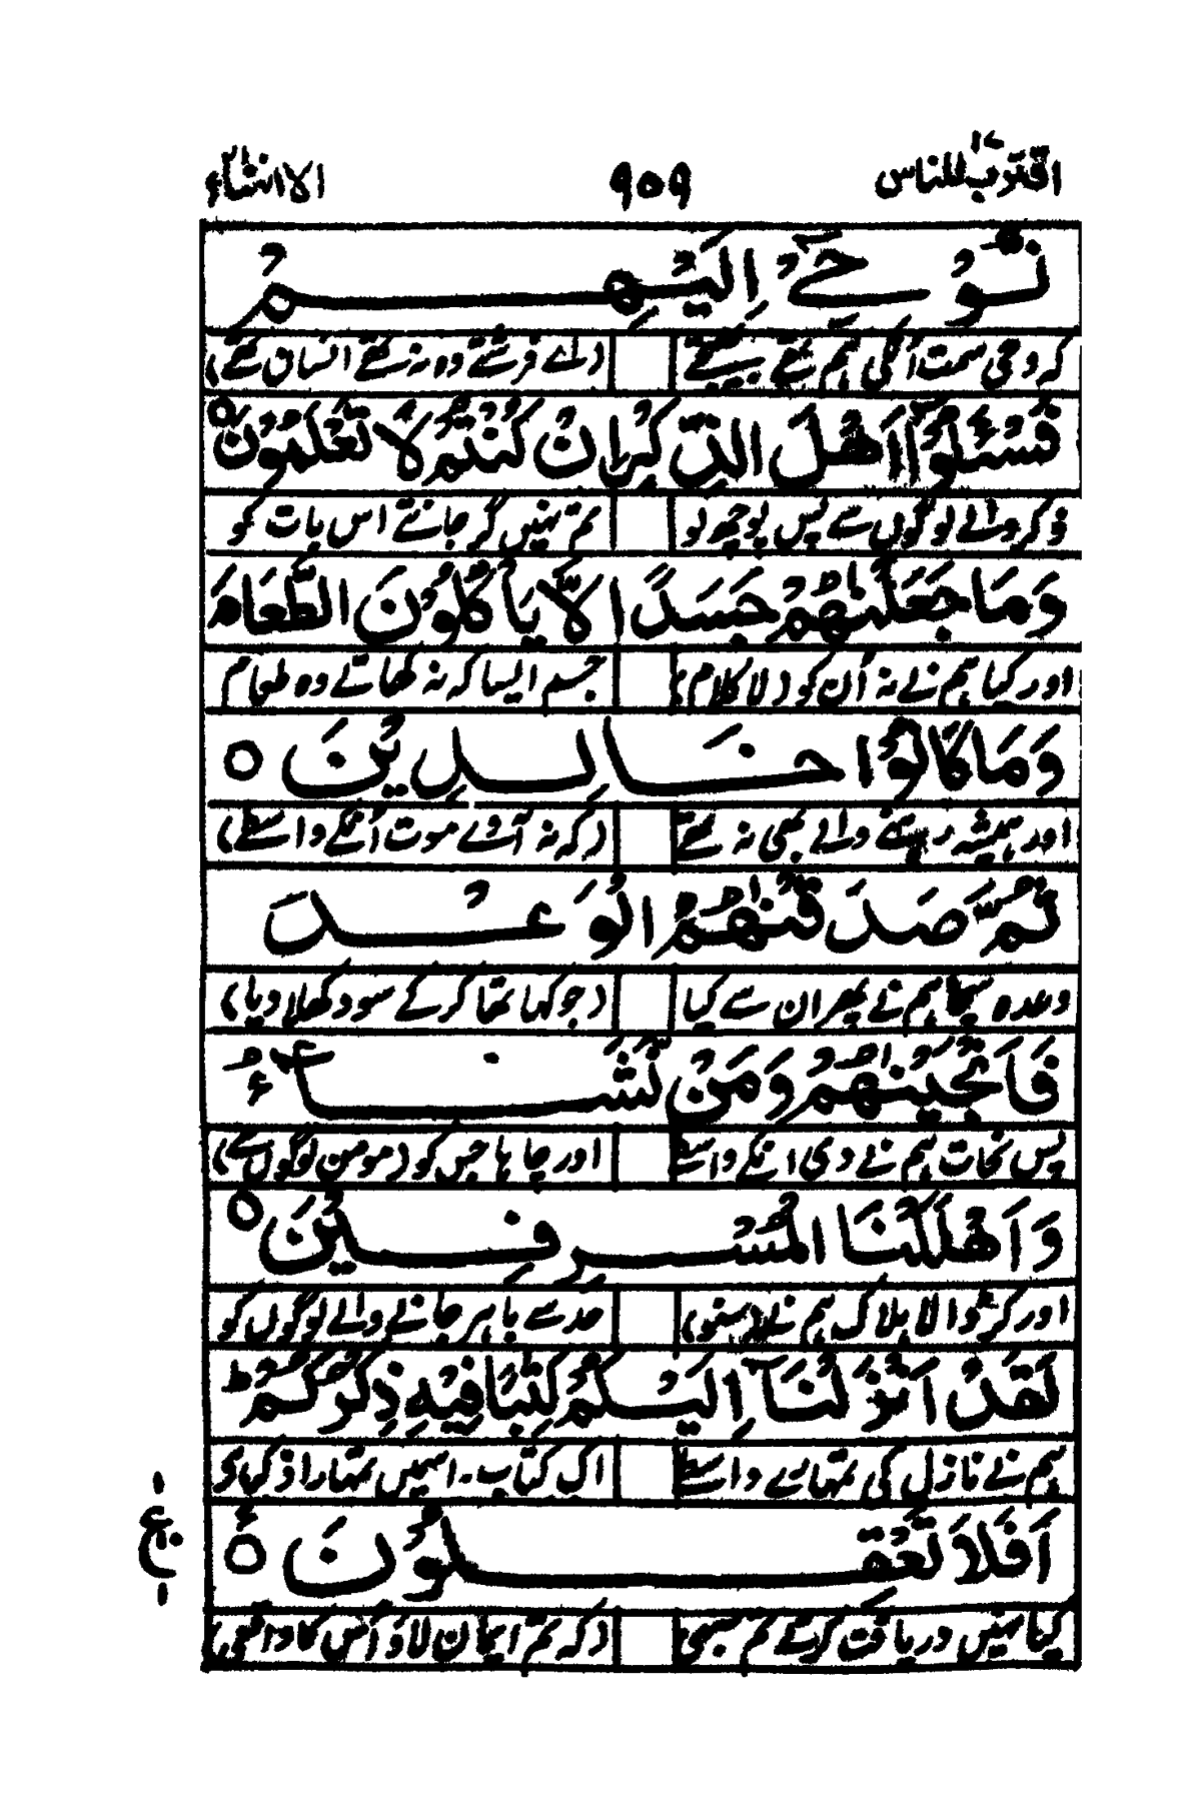 اقترب للناس ۱۷ ۹۵۹ الانبیاء ۲۱
نُّوْحِیْٓ اِلَیْهِمْ
کہ وحی سمت اُنکی ہم تھے بھیجتے (اے فرشتے وہ نہ تھے انسان تھے)
فَسْئَلُوْٓا اَهْلَ الذِّكْرِ اِنْ كُنْتُمْ لَا تَعْلَمُوْنَ ۝
ذکر والے لوگوں سے پس پوچھ لو تم نہیں گر جانتے اس بات کو
وَمَا جَعَلْنٰهُمْ جَسَدًا الَّا یَاْكُلُوْنَ الطَّعَامَ
اور کیا ہم نے نہ اُن کو (لا کلام) جسم ایسا کہ نہ کھاتے وہ طعام
وَمَا كَانُوْا خَالِدِیْنَ ۝
اور ہمیشہ رہنے والے بھی نہ تھے (کہ نہ آوے موت اُنکے واسطے)
ثُمَّ صَدَقْنٰهُمُ الْوَعْدَ
وعدہ سچا ہم نے پھر ان سے کیا (جو کہا تھا کرکے سو دکھلا دیا)
فَاَنْجَیْنٰهُمْ وَمَنْ نَّشَآءُ
پس نجات ہم نے دی انکے واسطے اور چاہا جس کو (مومن لوگوں سے)
وَاَهْلَكْنَا الْمُسْرِفِیْنَ ۝
اور کر ڈالا ہلاک ہم نے (سنو) حد سے باہر جانے والے لوگوں کو
لَقَدْ اَنْزَلْنَآ اِلَیْكُمْ كِتٰبًا فِیْهِ ذِكْرُكُمْ ؕ
ہم نے نازل کی تمہارے واسطے اک کتاب۔ اسمیں تمہارا ذکر ہے
اَفَلَا تَعْقِلُوْنَ ۝
۱ ع ۱
کیا نہیں دریافت کرتے تم سبھی (کہ تم ایمان لاؤ اُس کا واقعی)